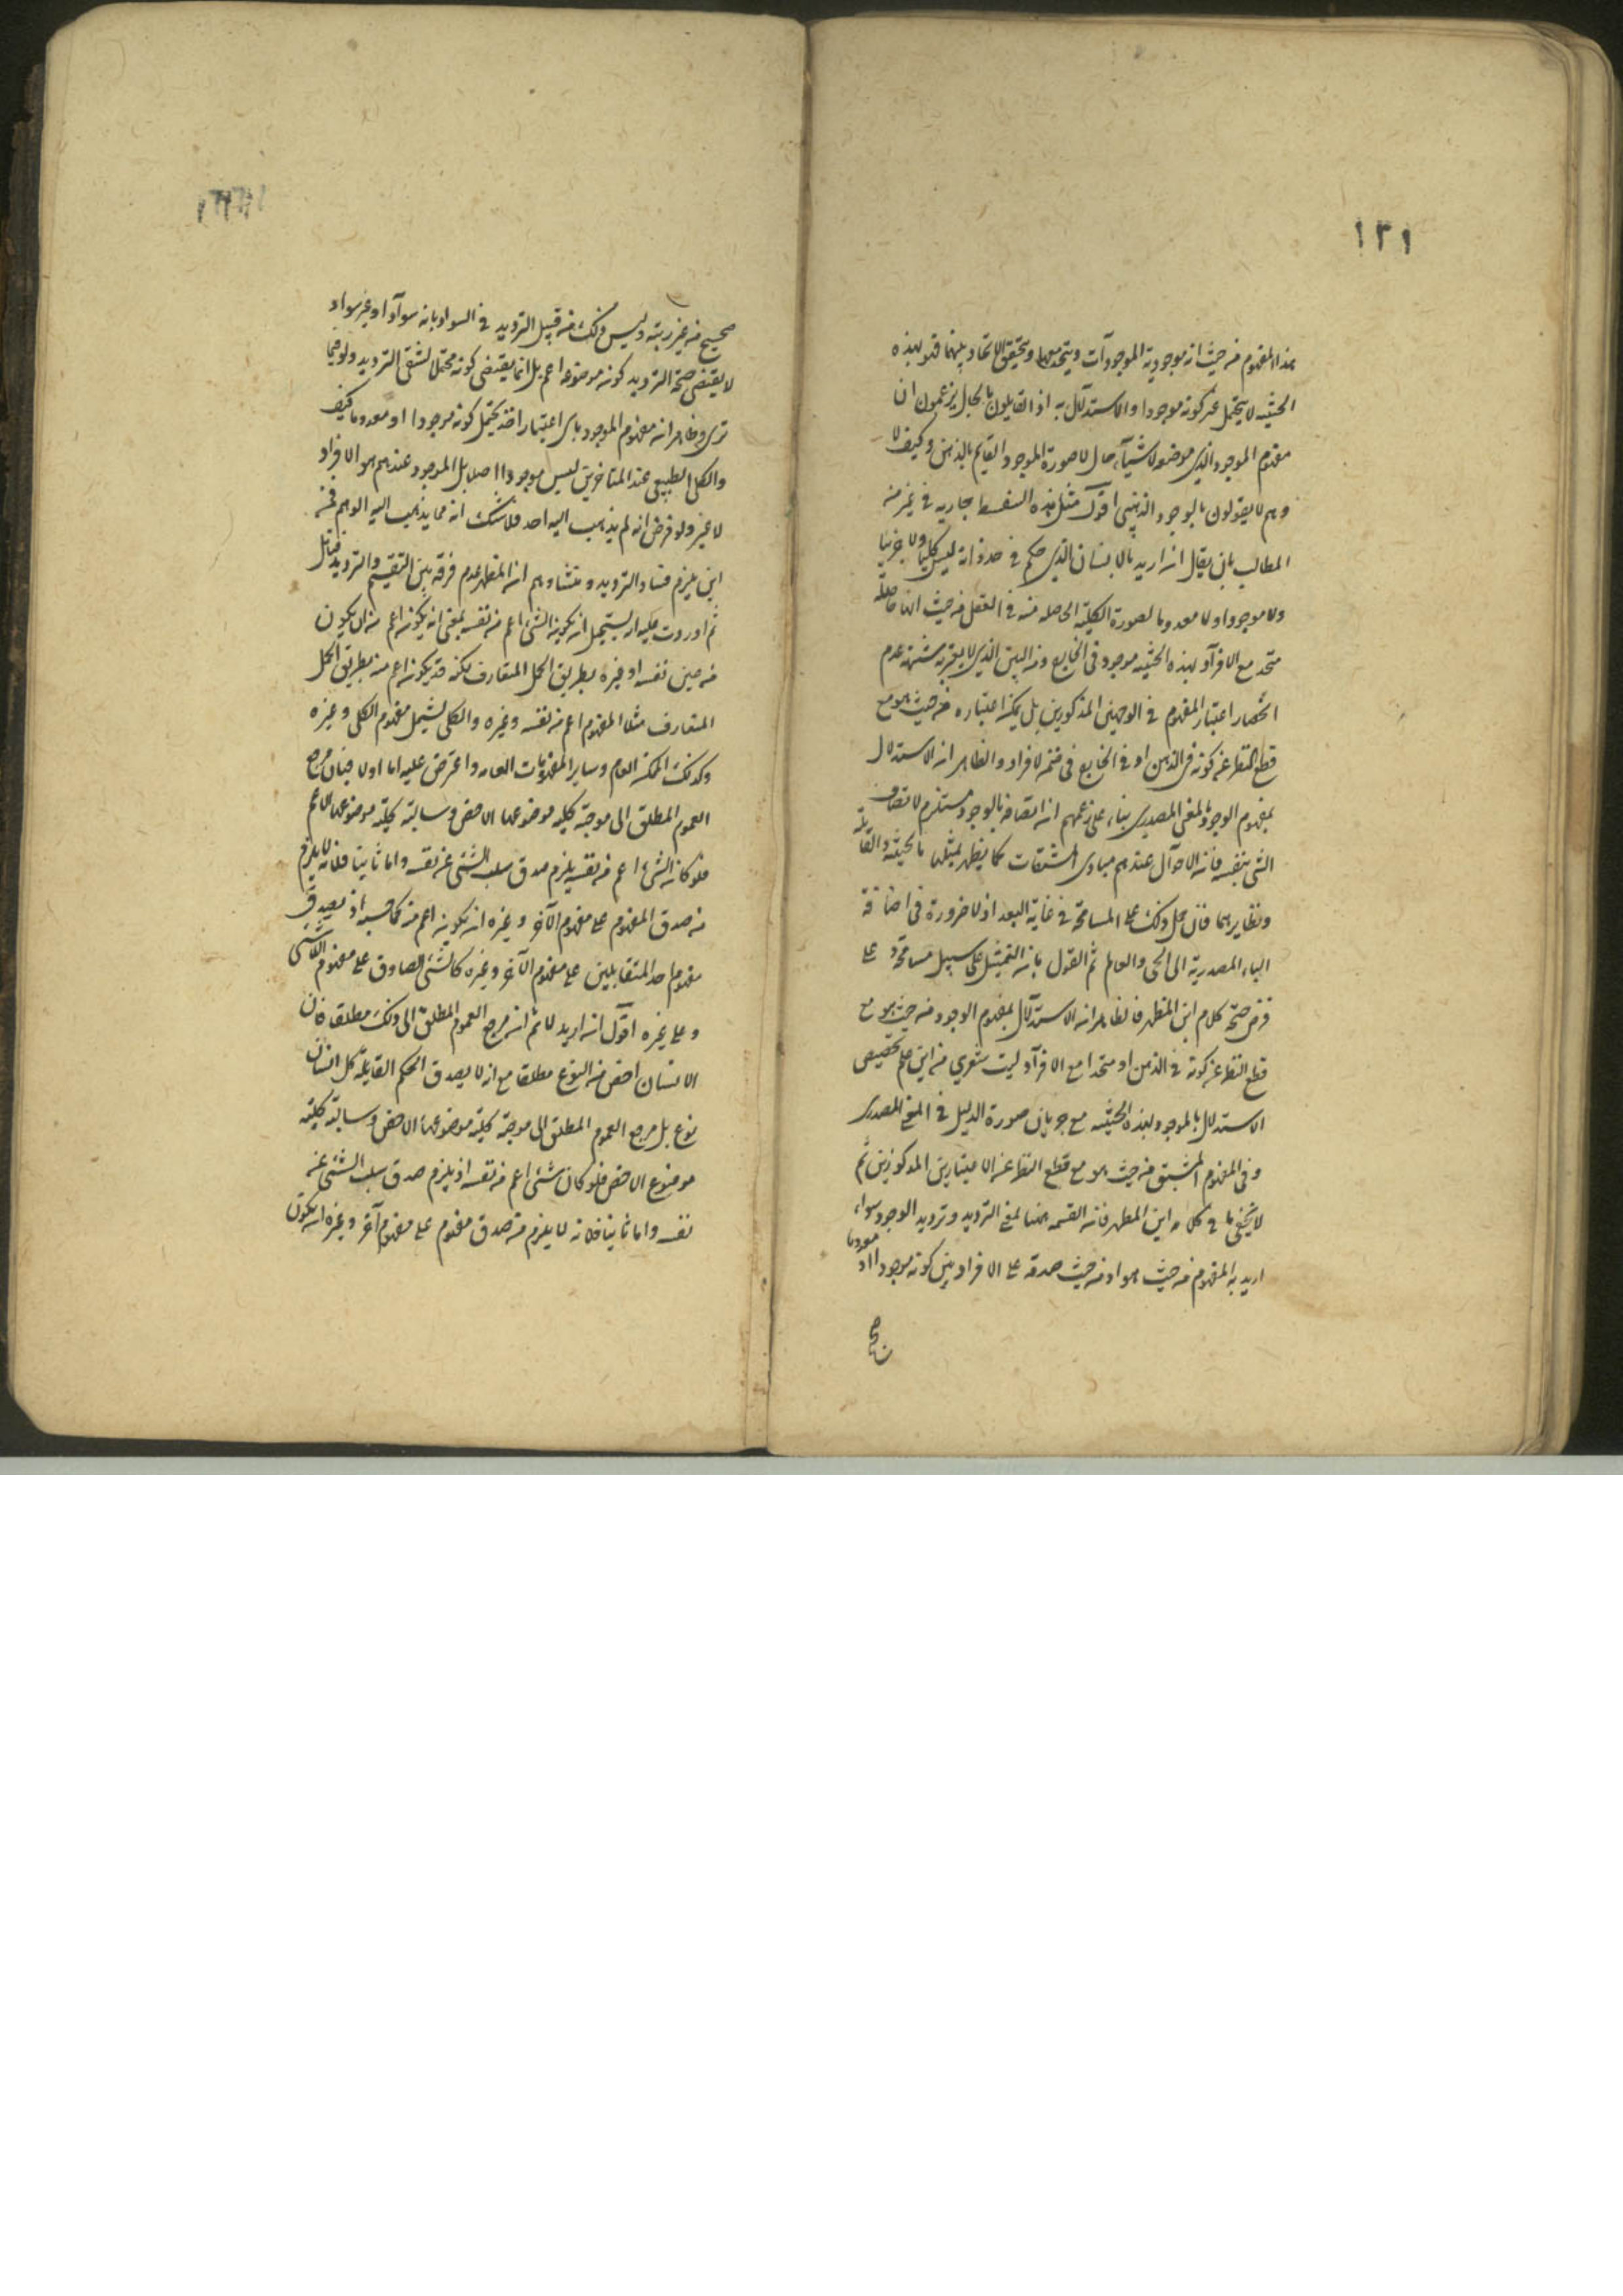 ١٢١
هذا المفهوم من حيث انه موجودية الموجودآت ويتحد معها ويتحقق الاتحاد بينهما فهو بهذه
الحيثيه لا يحتمل غير كونه موجودا والاستدلال به اذ القايلون بالحال يزعمون ان
مفهوم الموجود الذي موضوع لاشيآء حال لا صورة الموجود القايم بالذهن وكيف لا
وهم لا يقولون بالوجود الذهني اقول مثل هذه السفسطه جاريه في غير منه
المطالب بان يقال ان اريد بالانسان الذي حكم في حد ذاته ليس كليا ولا جزيا
ولا موجودا ولا معدوما لصورة الكليه الحاصله منه في العقل من حيث انها حاصله
متحد مع الافرآد بهذه الحيثيه موجود في الخارج ومن البين الذي لا يعتريه شبهة عدم
انحصار اعتبار المفهوم في الوجهين المذكورين بل يمكن اعتباره من حيث هو مع
قطع النظر عن كونه في الذهن او في الخارج في ضمن الافراد والظاهر ان الاستدلال
بمفهوم الوجود بالمعنى المصدري بناء على زعمهم ان اتصافه بالوجود مستلزم لاتصاف
الشئ بنفسه فان الاحوآل عندهم مبادى المشتقات كما يظهر تمثيلها بالحيثيه والقابليه
ونظايرهما فان حمل ذلك على المسامحة في غاية البعد اذ لا ضرورة في اضافة
الياء المصدرية الى الحى والعالم ثم القول بان التمثيل على سبيل مسامحة وعلى
فرض صحة كلام ابن المطهر فالظاهر ان الاستدلال بمفهوم الوجود من حيث هو مع
قطع النظر عن كونه في الذهن او متحدا مع الافرآد ليت شعري من اين علم تخصيص
الاستدلال بالموجود بهذه الحيثيه مع جريان صورة الدليل في المعنى المصدري
وفي المفهوم المشتق من حيث هو مع قطع النظر عن الاعتبارين المذكورين ثم
لا يخفى ما في كلام ابن المطهر فان القسمه ههنا بمعنى الترديد وترديد الوجود سواء
اريد به المفهوم من حيث هو او من حيث صدقه على الافراد بين كونه موجودا او معدوما
صحيح
صحيح من غير ريبه وليس ذلك من قبيل الترديد في السواد بانه سوآد او غير سواد
لا يقتضى صحة الترديد كونه موضوعه اعم بل انما يقتضى كونه محتملا لشقى الترديد ولو فيما
ترى وظاهر انه مفهوم الموجود باى اعتبار اخذ يحتمل كونه موجودا او معدوما كيف
والكلى الطبيعى عند المتاخرين ليس موجودا اصلا بل الموجود عندهم هو الافراد
لا غير ولو فرض انه لم يذهب اليه احد فلا شك انه مما يذهب اليه الوهم فمن
اين يلزم فساد الترديد ومنشاؤهم ان المطهر عدم فرقه بين التقسيم والترديد فتامل
ثم اوردت عليه انه يستحيل ان يكون الشئ اعم من نفسه بمعنى انه يكون اعم من ان يكون
من عين نفسه او غيره بطريق الحمل المتعارف لكنه قد يكون اعم منه بطريق الحمل
المتعارف مثلا المفهوم اعم من نفسه وغيره والكلى يشمل مفهوم الكلى وغيره
وكذلك الممكن العام وساير المفهومات العامه واعترض عليه اما اولا فبان مرجع
العموم المطلق الى موجبة كليه موضوعها الاخص وسالبة كلية موضوعها الاعم
فلو كان الشئ اعم من نفسه يلزم صدق سلب الشئ عن نفسه واما ثانيا فلانه لا يلزم
من صدق المفهوم على مفهوم الآخر وغيره ان يكون اعم منه كما حسبه اذ يصدق
مفهوم احد المتقابلين على مفهوم الآخر وغيره كالشئ الصادق على مفهوم اللاشئ
وعلى غيره اقول ان اريد لا ثم ان مرجع العموم المطلق الى ذلك مطلقا فان
الانسان اخص من النوع مطلقا مع انه لا يصدق الحكم القايلة كل انسان
نوع بل مرجع العموم المطلق الى موجبة كلية موضوعها الاخص وسالبة كلية
موضوع الاخص فلو كان شئ اعم من نفسه اذ يلزم صدق سلب الشئ عن
نفسه واما ثانيا فلانه لا يلزم من صدق مفهوم على مفهوم آخر وغيره ان يكون